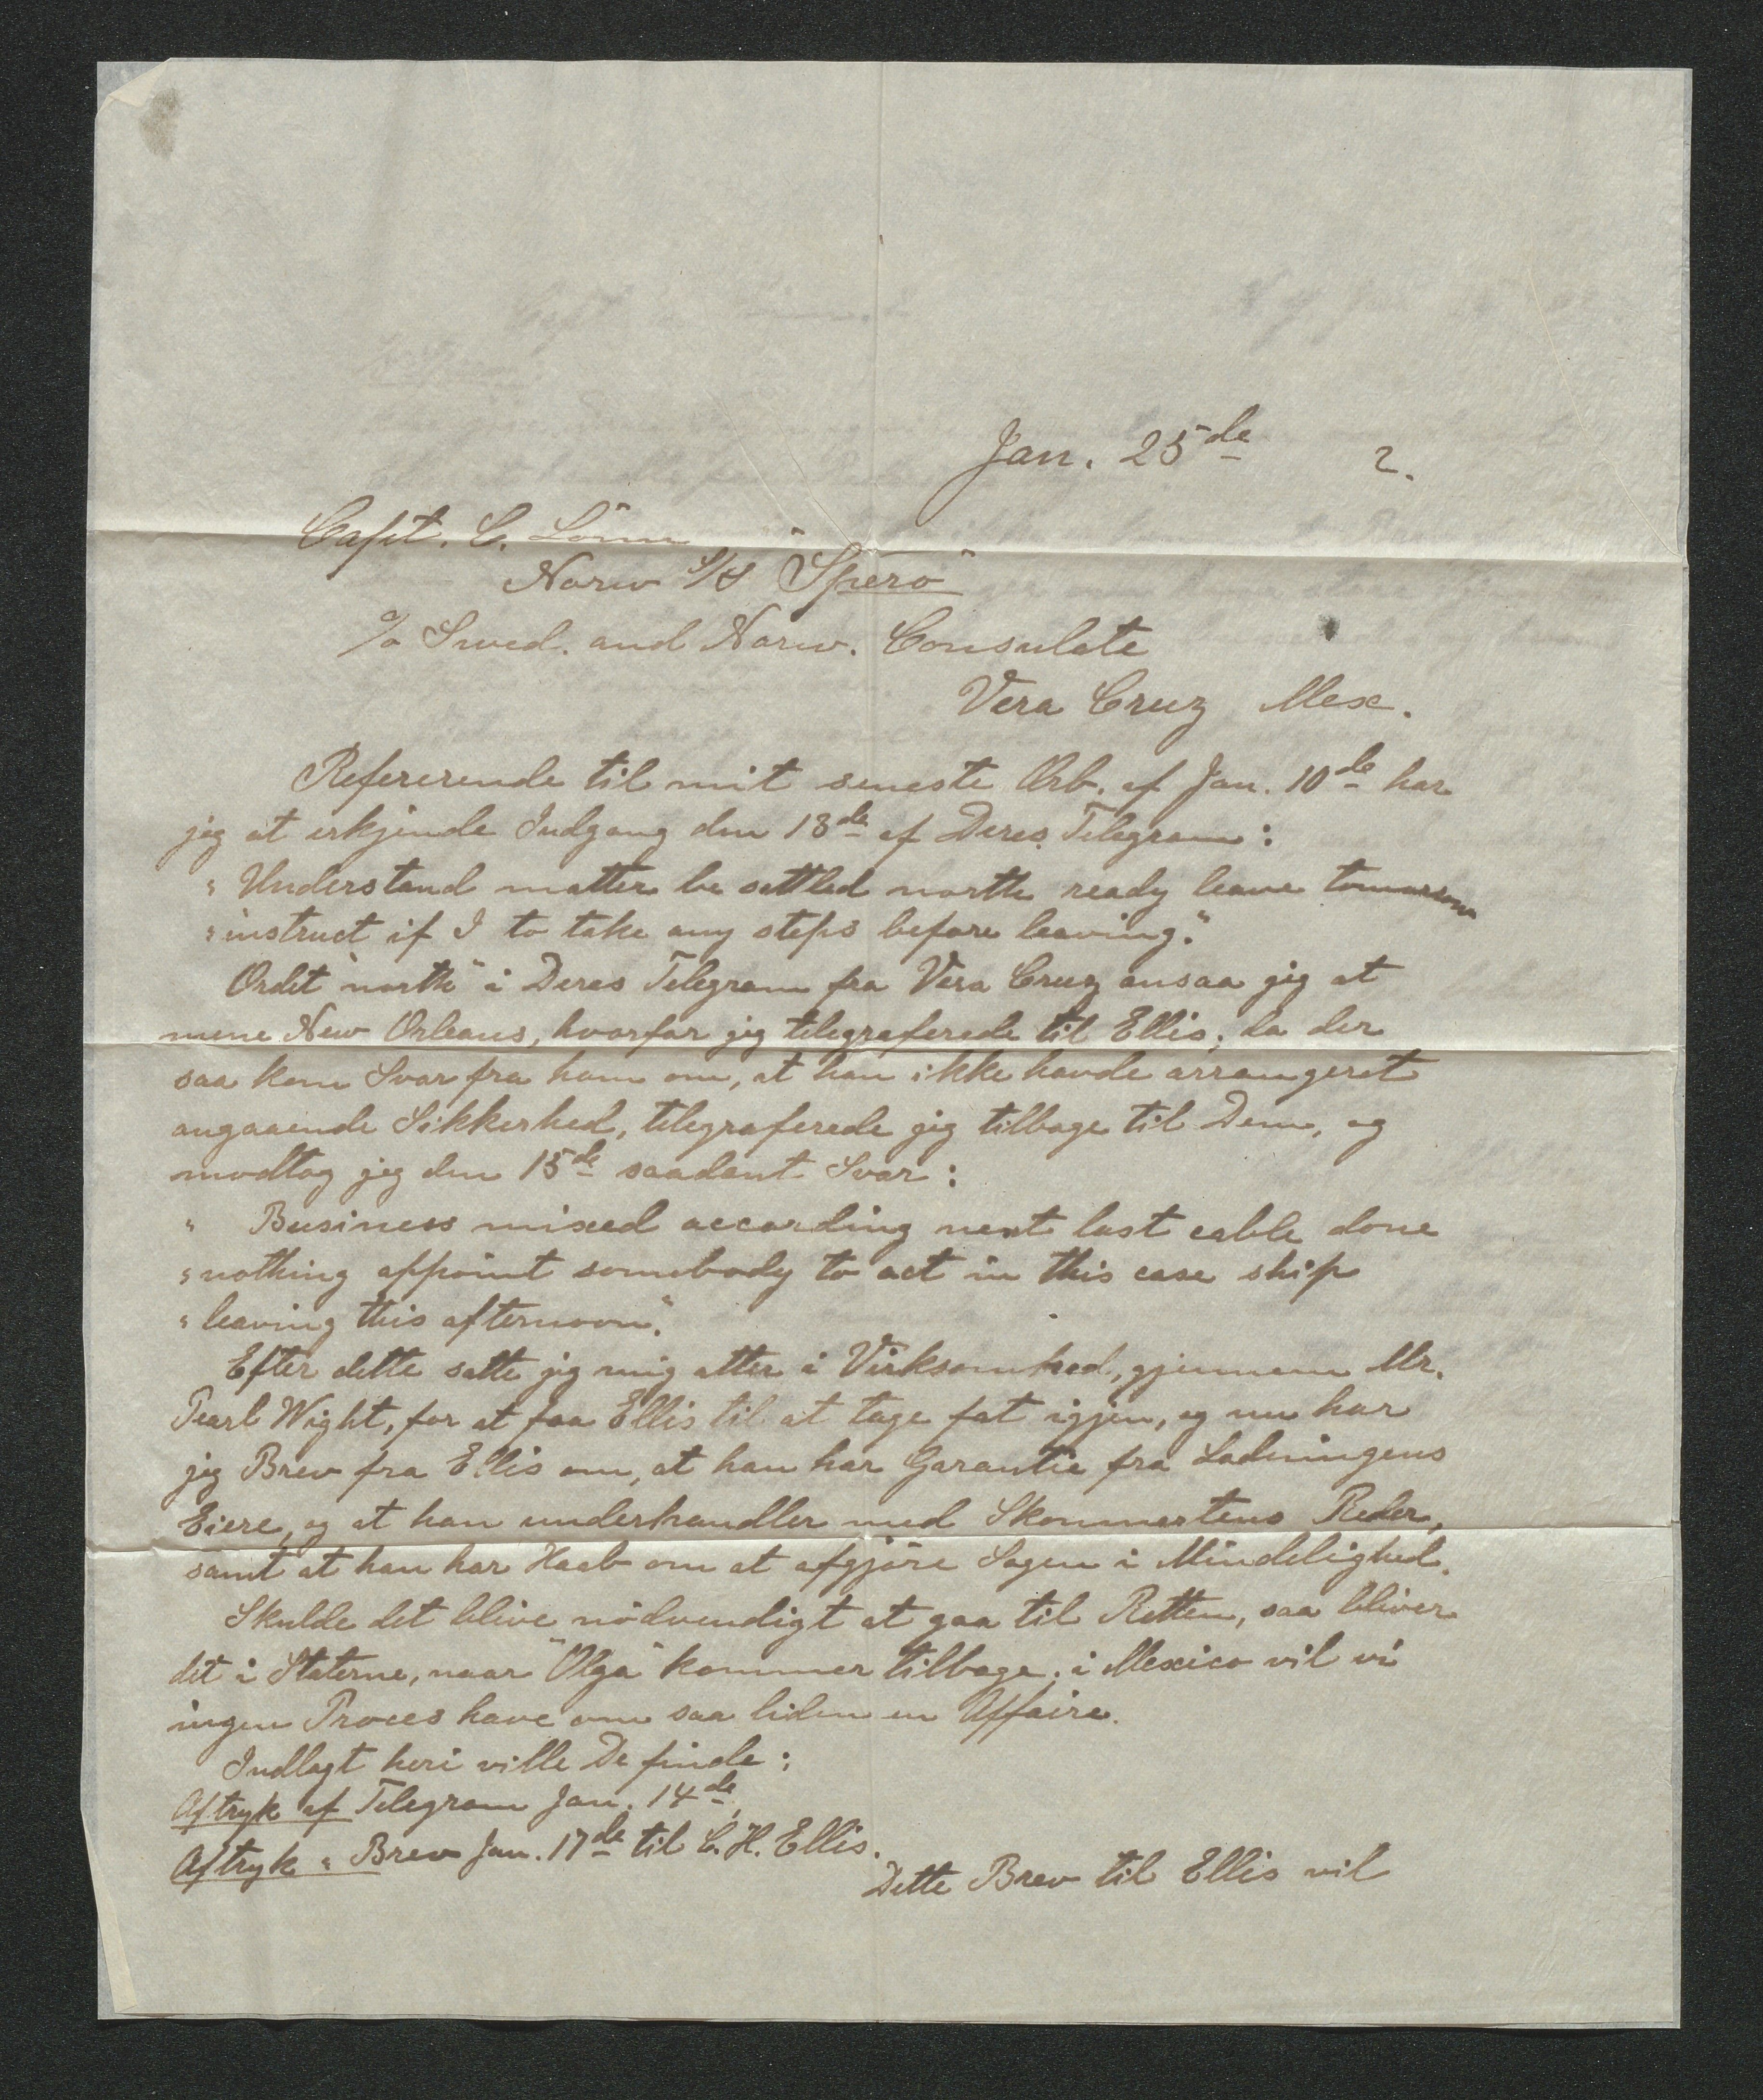 Jan. 25de 2.
Capt. C. Lönn
Norw S/S "Spero"
c/o Swed. and Norw. Consulate
Vera Cruz Mex.
Refererende til mit seneste Orb. af Jan. 10de har
jeg at erkjende Indgang den 13de af Deres Telegram:
"Understand matter be settled north ready leave tomorrow
"instruct if I to take any steps before leaving."
Ordet "north" i Deres Telegram fra Vera Cruz ansaa jeg at
mene New Orleans, hvorfor jeg telegraferede til Ellis; da der
saa kom Svar fra ham om, at han ikke havde arrangeret
angaaende Sikkerhed, telegraferede jeg tilbage til Dem, og
modtog jeg den 15de saadant Svar:
" Business mixed according next last cable done
"nothing appoint somebody to act in this case ship
"leaving this afternoon."
Efter dette satte jeg mig atter i Virksomhed, gjennem Mr.
Pearl Wight, for at faa Ellis til at tage fat igjen, og nu har
jeg Brev fra Ellis om, at han har Garantie fra Ladningens
Eiere, og at han underhandler med Skonnertens Reder,
samt at han har Haab om at afgjöre Sagen i Mindelighed.
Skulde det blive nödvendigt at gaa til Retten, saa bliver
det i Staterne, naar "Olga" kommer tilbage; i Mexico vil vi
ingen Proces have om saa liden en Affaire.
Indlagt heri ville De finde:
Aftryk af Telegram Jan. 14de,
Aftryk " Brev Jan. 17de til C. H. Ellis.
Dette Brev til Ellis vil